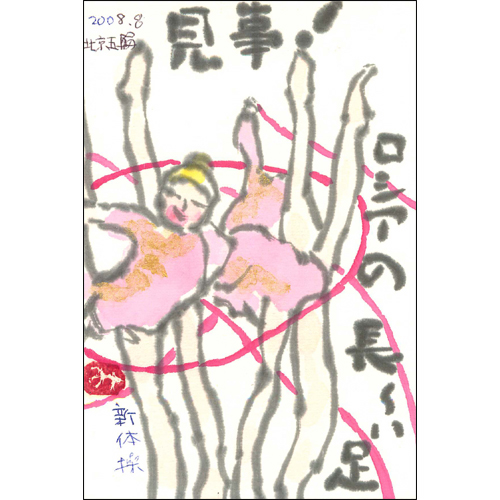 2008.8
北京五輪
見事!
ロシアの
長〜い足
新体操